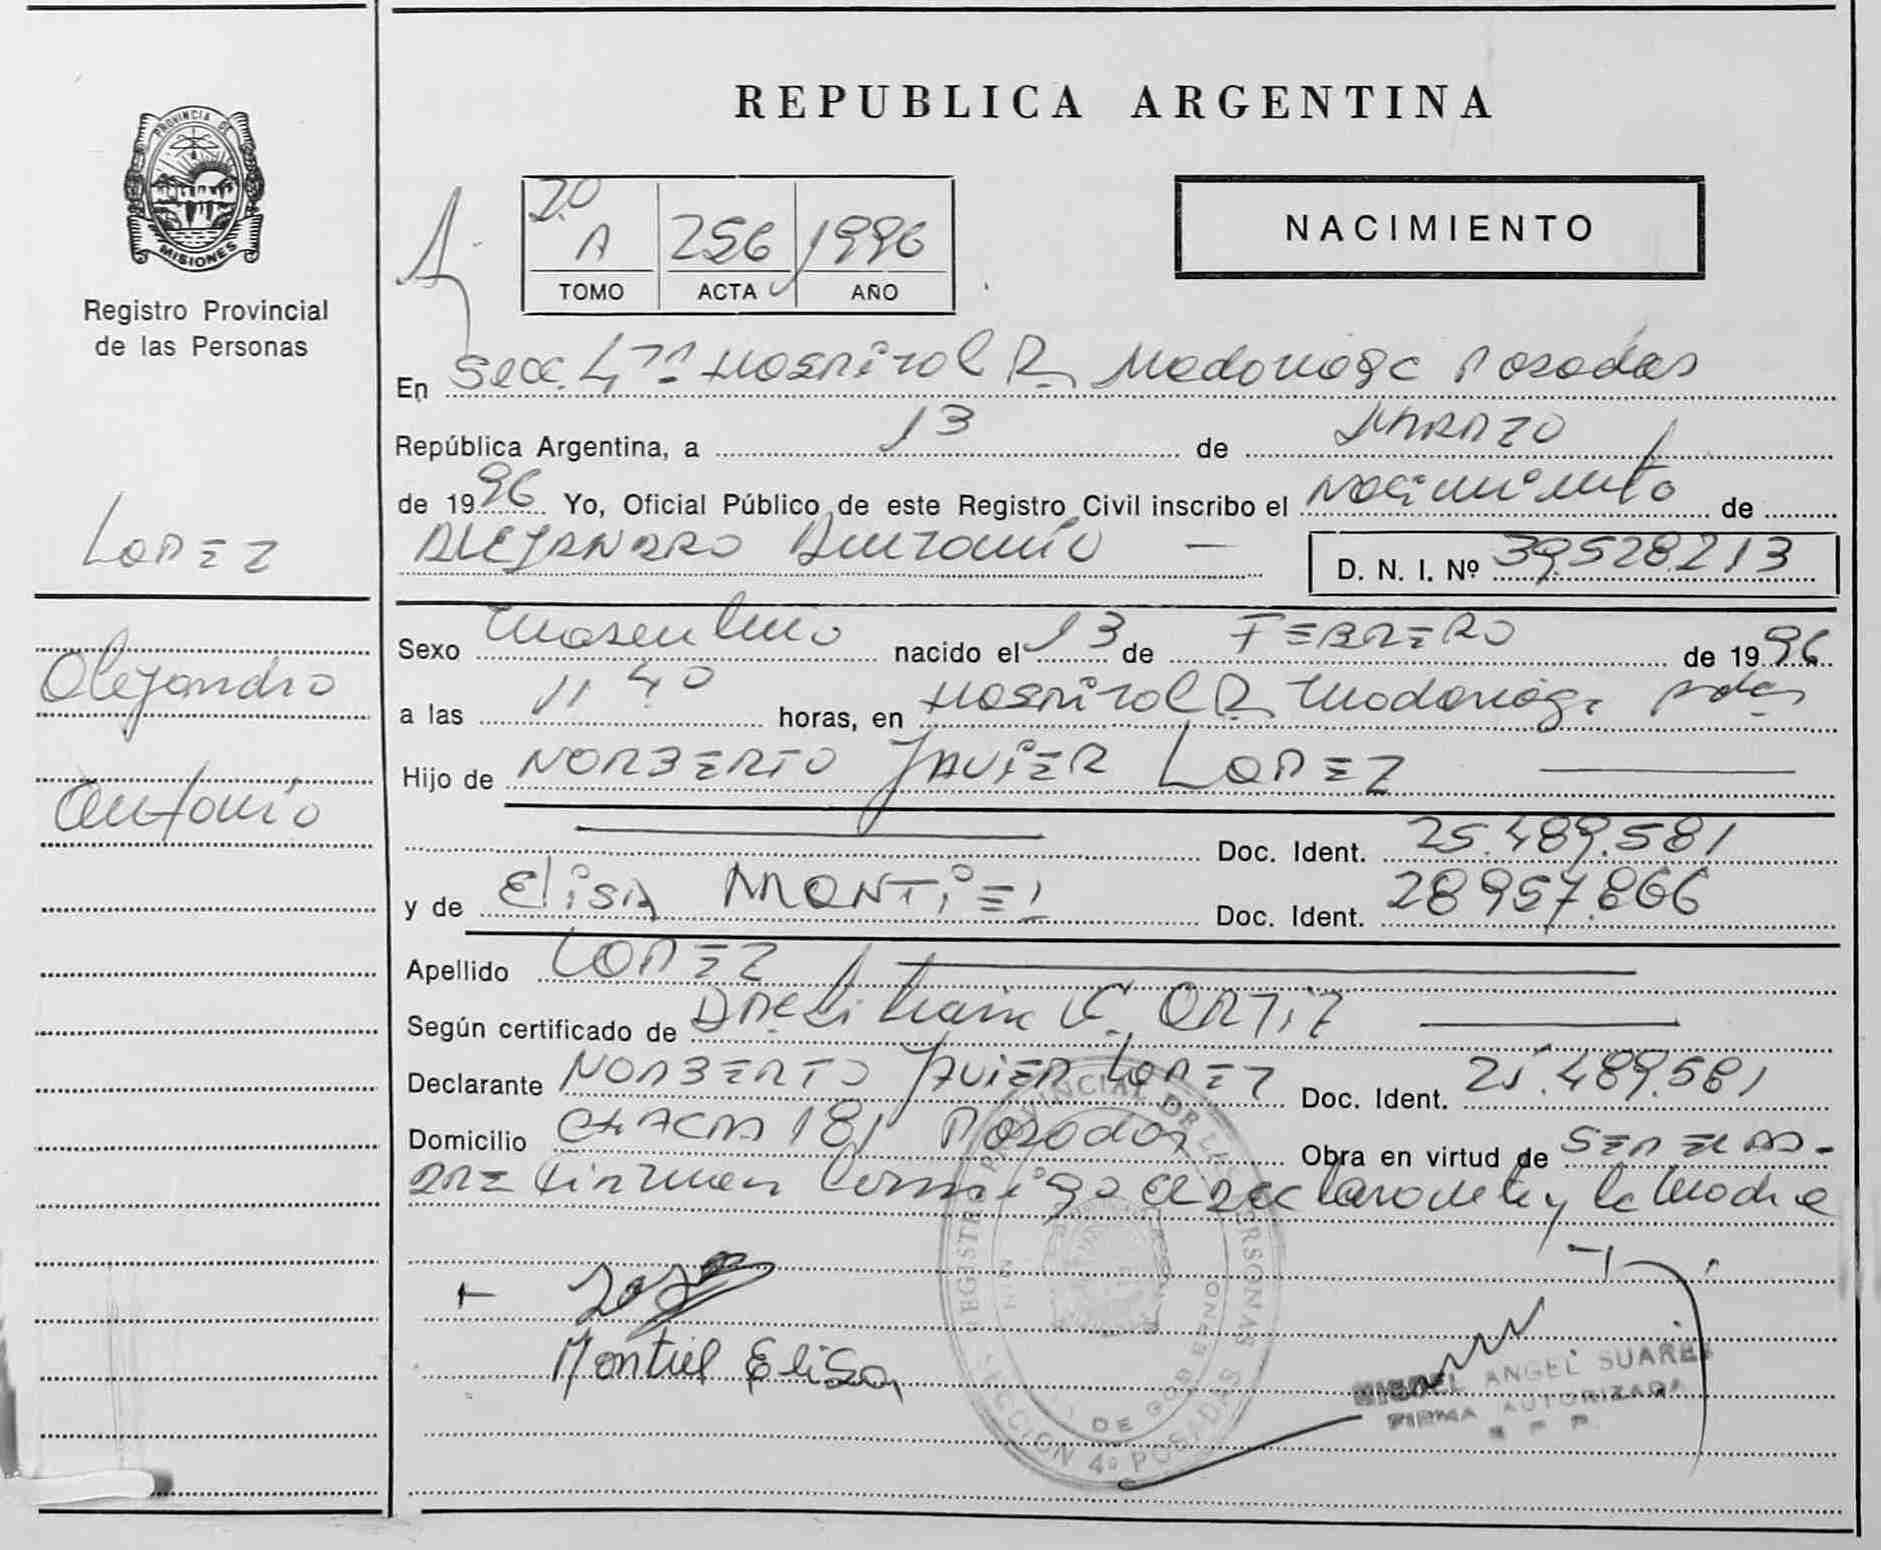 PROVINCIA DE
MISIONES
Registro Provincial
de las Personas
LOPEZ
Alejandro
Antonio
REPUBLICA ARGENTINA
2º
A 256 1996
TOMO ACTA AÑO
NACIMIENTO
En Secc. 4ta Hospital R. Madariaga Posadas
República Argentina, a 13 de MARZO
de 1996 Yo, Oficial Público de este Registro Civil inscribo el Nacimiento de
ALEJANDRO Antonio — D. N. I. Nº 39.528.213
Sexo Masculino nacido el 13 de FEBRERO de 1996
a las 11 40 horas, en Hospital R. Madariaga Pdas
Hijo de NORBERTO JAVIER LOPEZ
Doc. Ident. 25.489.581
y de ELiSA MONTiEl Doc. Ident. 28957.866
Apellido LOPEZ
Según certificado de DRA Liliana C. ORTiZ
Declarante NORBERTO JAViER LOPEZ Doc. Ident. 25.489.581
Domicilio CHACRA 181 Posadas Obra en virtud de SER EL PA-
DRE firman conmigo el declarante y la Madre
Montiel Elisa
REGISTRO PROVINCIAL DE LAS PERSONAS
DE GOBIERNO
SECCION 4º POSADAS
MIGUEL ANGEL SUAREZ
FIRMA AUTORIZADA